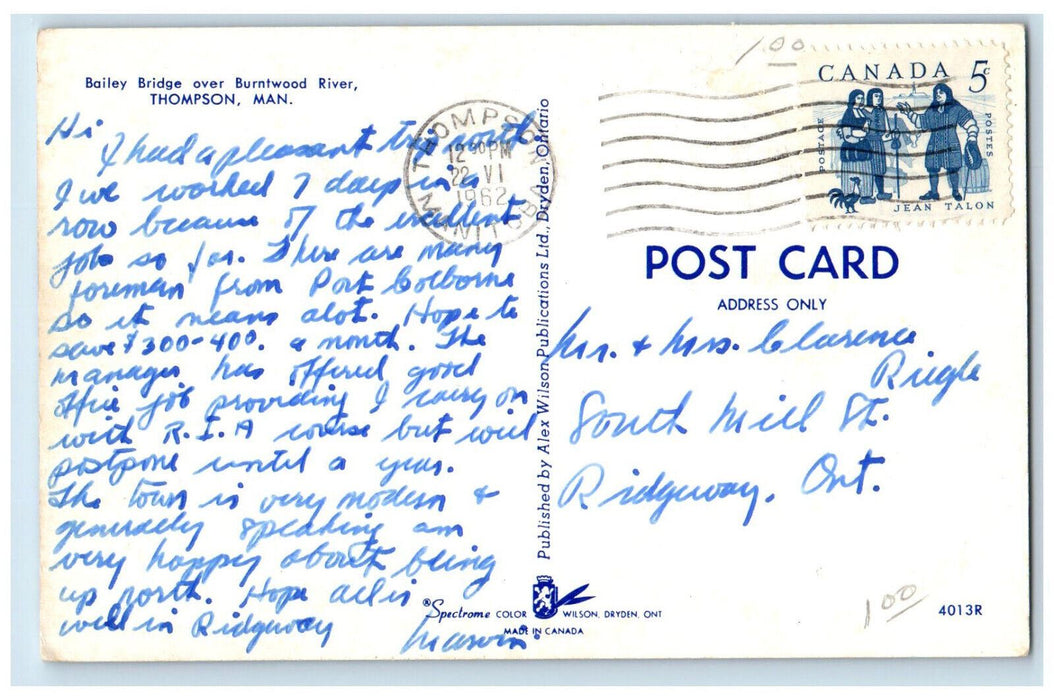 Bailey Bridge over Burntwood River,
THOMPSON, MAN.
Hi
I had a pleasant trip north
I've worked 7 days in a
row because of the excellent
job so far. There are many
foreman from Port Colborne
so it means alot. Hope to
save $300-400. a month. The
manager has offered good
office job providing I carry on
with R.I.A course but will
postpone until a year.
The town is very modern &
generally speaking am
very happy about being
up north. Hope all is
well in Ridgeway
Marvin
THOMPSON
12 30 PM
22 VI
1962
MANITOBA
Published by Alex Wilson Publications Ltd., Dryden, Ontario
1.00
CANADA 5c
POSTAGE
POSTES
JEAN TALON
POST CARD
ADDRESS ONLY
Mr. & Mrs. Clarence
Riegle
South Mill St.
Ridgeway, Ont.
®Spectrome COLOR WILSON, DRYDEN, ONT
MADE IN CANADA
1.00
4013R